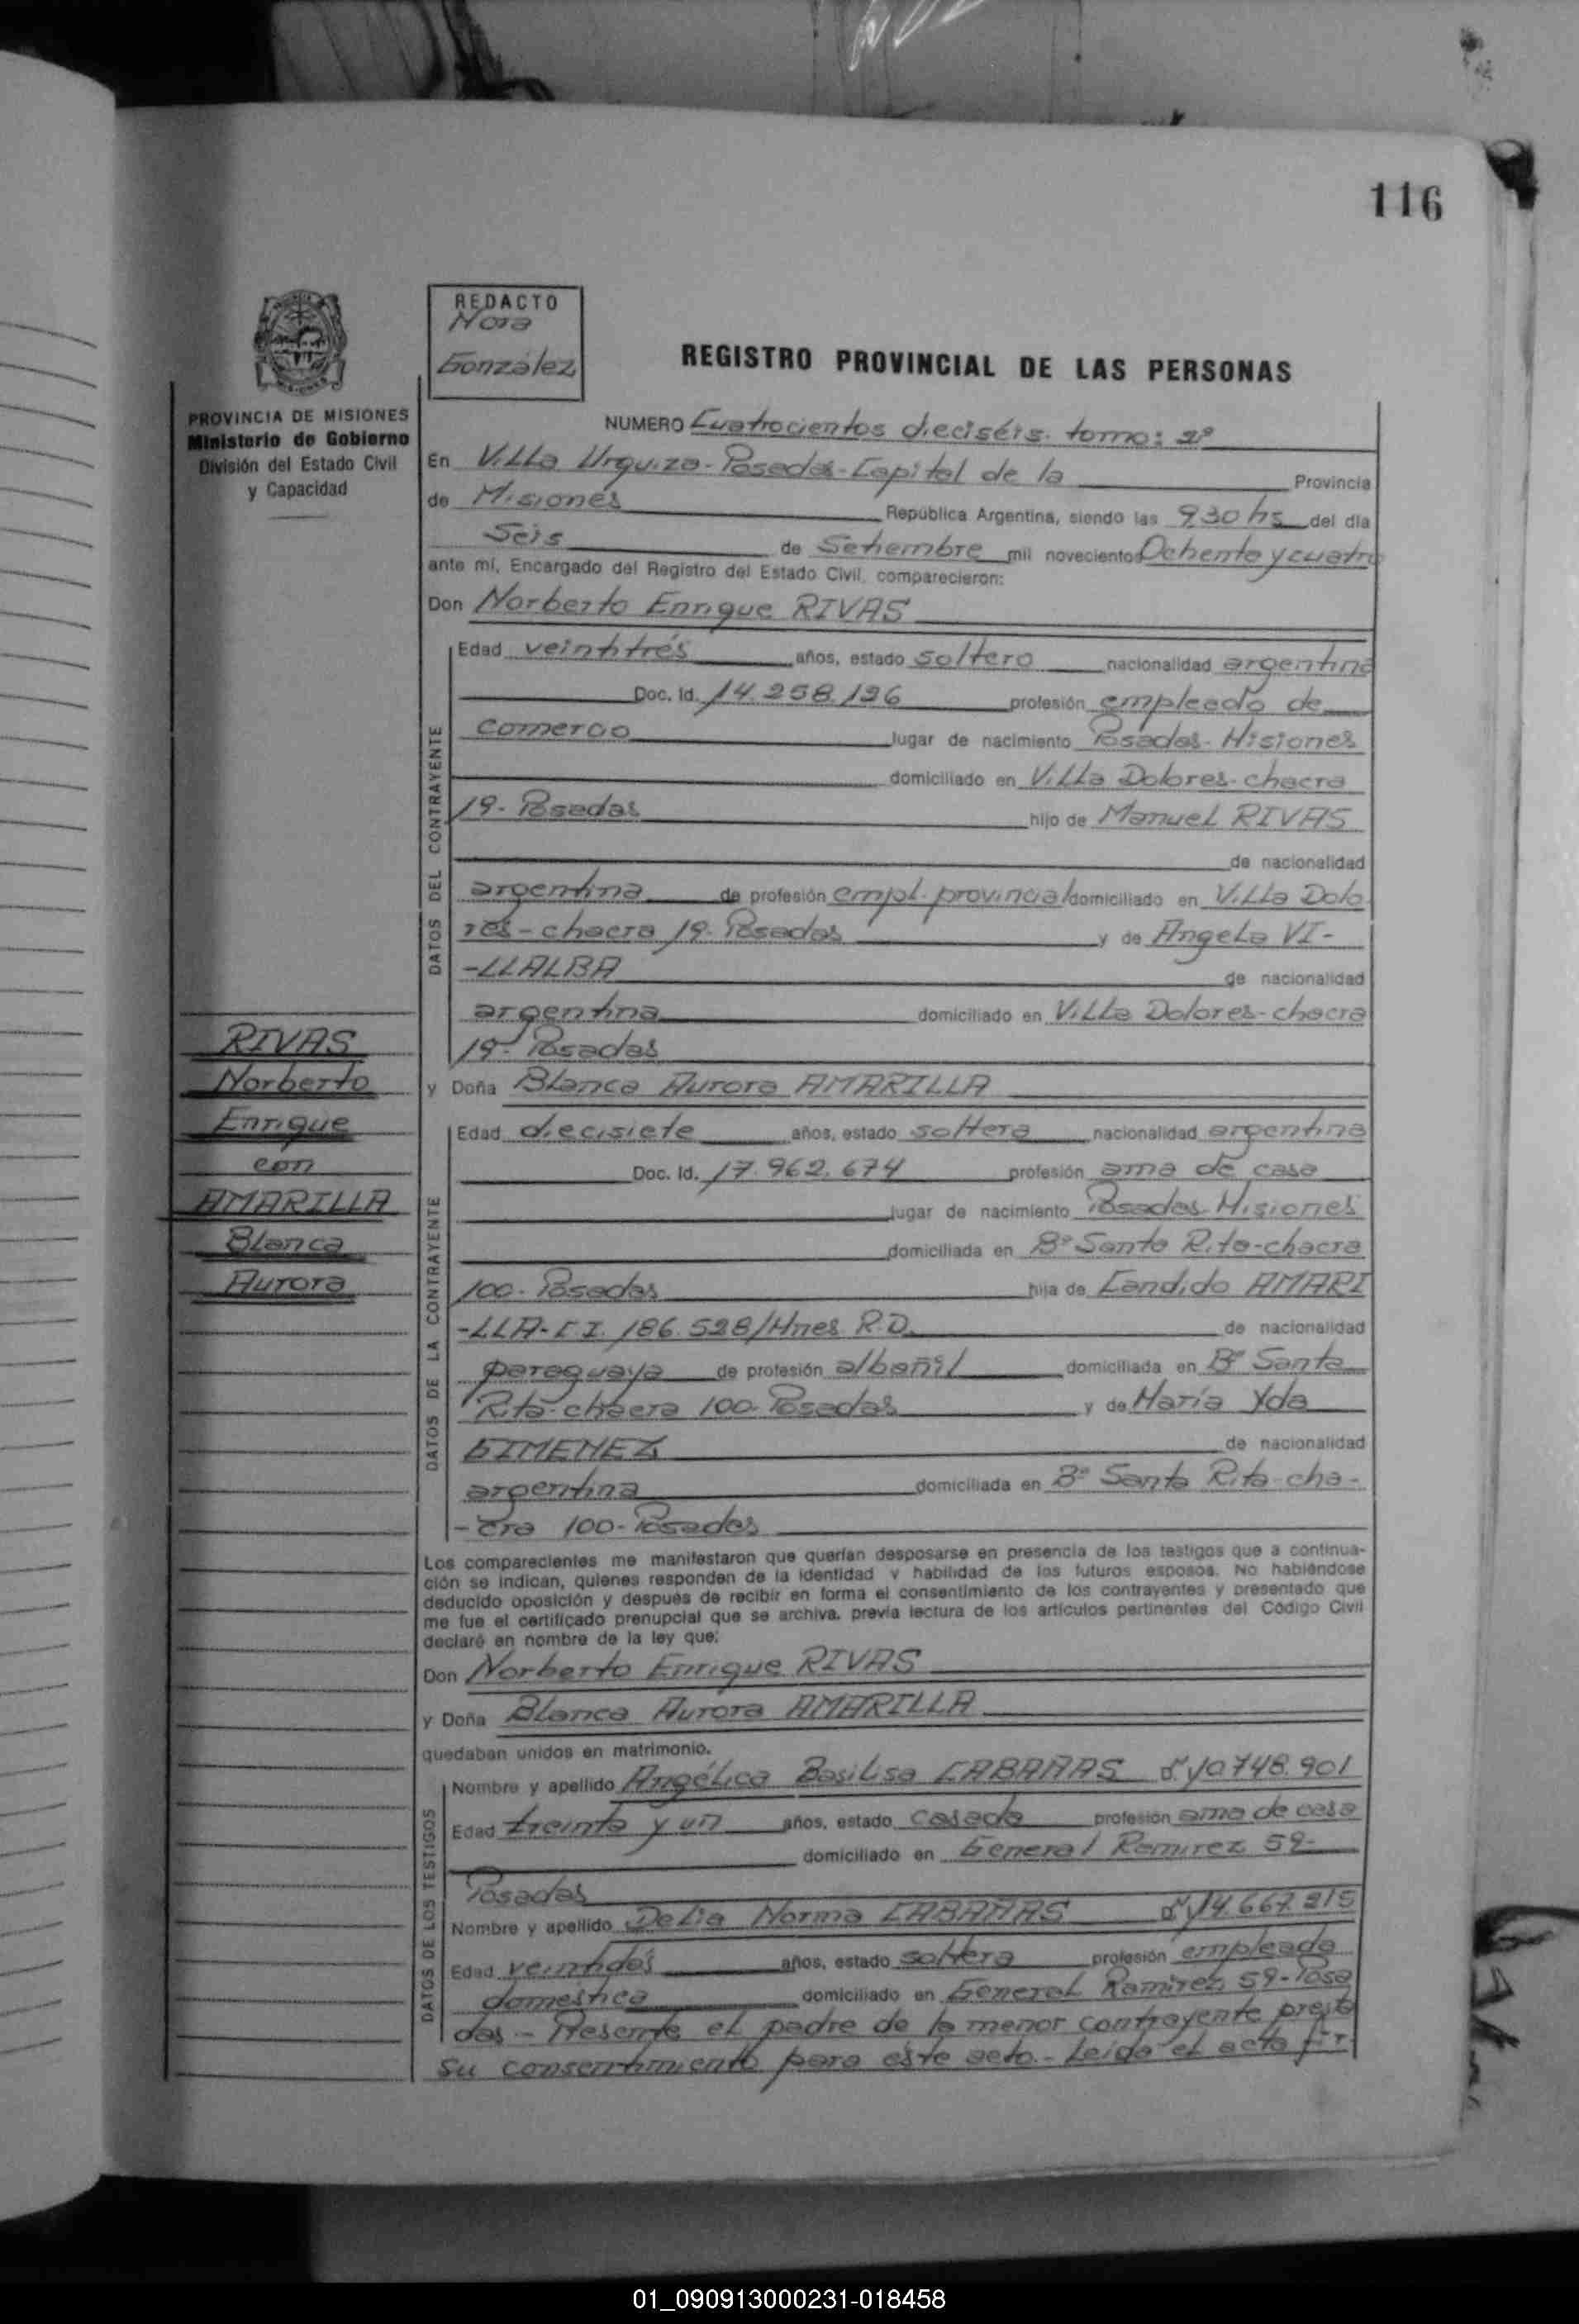 116
REDACTO
Nora
González
REGISTRO PROVINCIAL DE LAS PERSONAS
PROVINCIA DE MISIONES
Ministerio de Gobierno
División del Estado Civil
y Capacidad
NUMERO Cuatrocientos dieciséis. tomo: 2º
En Villa Urquiza-Posadas-Capital de la Provincia
de Misiones República Argentina, siendo las 930 hs del día
Seis de Setiembre mil novecientos Ochenta y cuatro
ante mí, Encargado del Registro del Estado Civil, comparecieron:
Don Norberto Enrique RIVAS
DATOS DEL CONTRAYENTE
Edad veintitrés años, estado soltero nacionalidad argentina
Doc. Id. 14.258.196 profesión empleado de
comercio lugar de nacimiento Posadas-Misiones
domiciliado en Villa Dolores-chacra
19-Posadas hijo de Manuel RIVAS
de nacionalidad
argentina de profesión empl. provincial domiciliado en Villa Dolo
res-chacra 19-Posadas y de Angela VI-
-LLALBA de nacionalidad
argentina domiciliado en Villa Dolores-chacra
19-Posadas
RIVAS
Norberto
Enrique
con
AMARILLA
Blanca
Aurora
y Doña Blanca Aurora AMARILLA
DATOS DE LA CONTRAYENTE
Edad diecisiete años, estado soltera nacionalidad argentina
Doc. Id. 17.962.674 profesión ama de casa
lugar de nacimiento Posadas-Misiones
domiciliada en Bº Santa Rita-chacra
100-Posadas hija de Candido AMARI
-LLA-C.I. 186.528/Mnes R.D. de nacionalidad
paraguaya de profesión albañil domiciliada en Bº Santa
Rita-chacra 100-Posadas y de María Yda
GIMENEZ de nacionalidad
argentina domiciliada en Bº Santa Rita-cha-
-cra 100-Posadas
Los comparecientes me manifestaron que querían desposarse en presencia de los testigos que a continua-
ción se indican, quienes responden de la identidad y habilidad de los futuros esposos. No habiéndose
deducido oposición y después de recibir en forma el consentimiento de los contrayentes y presentado que
me fue el certificado prenupcial que se archiva, previa lectura de los artículos pertinentes del Código Civil
declaré en nombre de la ley que:
Don Norberto Enrique RIVAS
y Doña Blanca Aurora AMARILLA
quedaban unidos en matrimonio.
DATOS DE LOS TESTIGOS
Nombre y apellido Angélica Basilisa CABAÑAS 10.748.901
Edad treinta y un años, estado casada profesión ama de casa
domiciliado en General Ramirez 59-
Posadas
Nombre y apellido Delia Norma CABAÑAS 14.667.215
Edad veintidós años, estado soltera profesión empleada
domestica domiciliado en General Ramirez 59-Posa
das-Presente el padre de la menor contrayente presta
su consentimiento para este acto.-Leida el acta
01_090913000231-018458